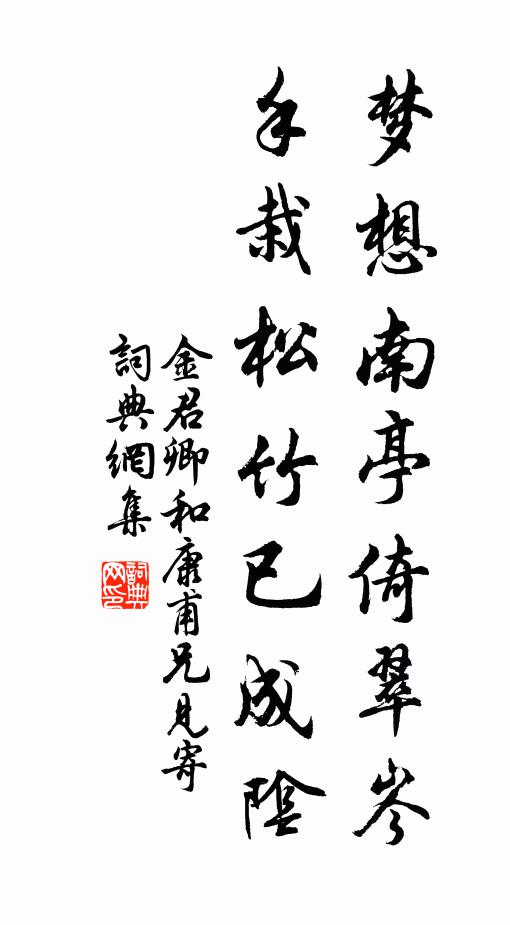 梦想南亭倚翠岑
手栽松竹已成陰
金君卿和康甫兄見寄
詞典網集
詞典网印